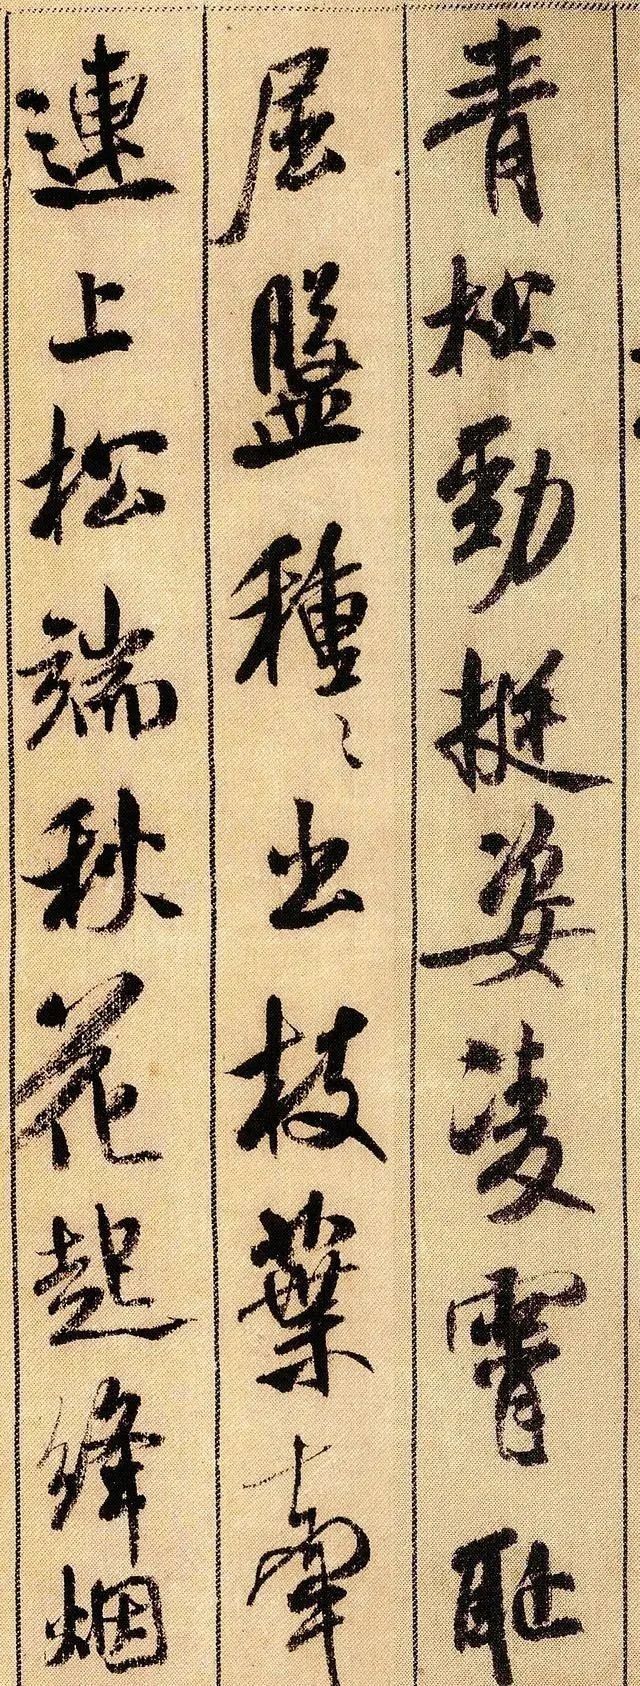 青松勁挺姿凌霄耻
屈盤種〻出枝葉牽
連上松端秋花起絳烟